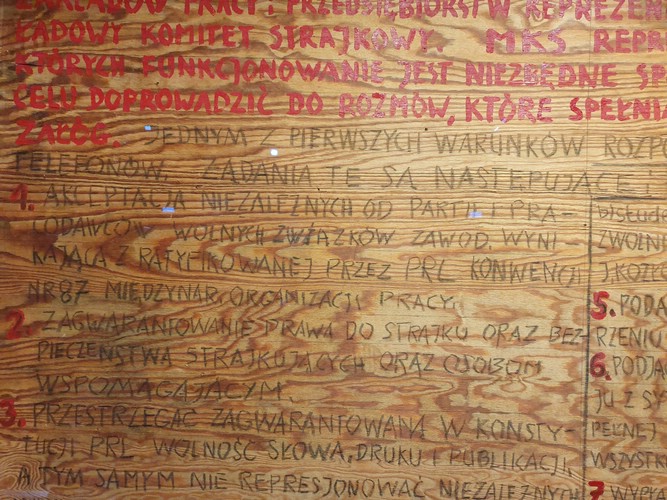 ZAKŁADÓW PRACY I PRZEDSIĘBIORSTW REPREZEN
ŁADOWY KOMITET STRAJKOWY. MKS REPR
KTÓRYCH FUNKCJONOWANIE JEST NIEZBĘDNE SP
CELU DOPROWADZIĆ DO ROZMÓW, KTÓRE SPEŁNI
ZAŁÓG. JEDNYM Z PIERWSZYCH WARUNKÓW ROZPO
TELEFONÓW. ŻĄDANIA TE SĄ NASTĘPUJĄCE
1. AKCEPTACJA NIEZALEŻNYCH OD PARTII I PRA-
CODAWCÓW WOLNYCH ZWIĄZKÓW ZAWOD. WYNI-
KAJĄCA Z RATYFIKOWANEJ PRZEZ PRL KONWENCJI
NR 87 MIĘDZYNAR. ORGANIZACJI PRACY.
2. ZAGWARANTOWANIE PRAWA DO STRAJKU ORAZ BEZ-
PIECZEŃSTWA STRAJKUJĄCYCH ORAZ OSOBOM
WSPOMAGAJĄCYM.
3. PRZESTRZEGAĆ ZAGWARANTOWANĄ W KONSTY-
TUCJI PRL WOLNOŚĆ SŁOWA, DRUKU I PUBLIKACJI,
A TYM SAMYM NIE REPRESJONOWAĆ NIEZALEŻNYCH
b)stud
ZWOLNI
5. PODA
RZENIU
6. PODJĄ
JU Z SY
PEŁNEJ
WSZYSTK
7 WYPŁ